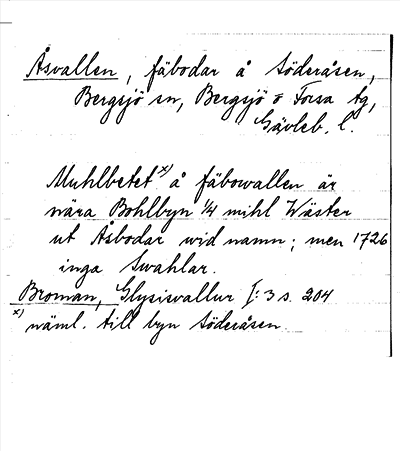 Åsvallen, fäbodar å Söderåsen,
Bergsjö sn, Bergsjö o Forsa tg,
Gävleb. l.
Muhlbetet x) å fäbowallen är
nära Bohlbyn 1/4 mihl Wäster
ut Åsbodar wid namn; men 1726
inga Swahlar.
Broman, Glysisvallur I: 3 s. 204
x) näml. till byn Söderåsen.